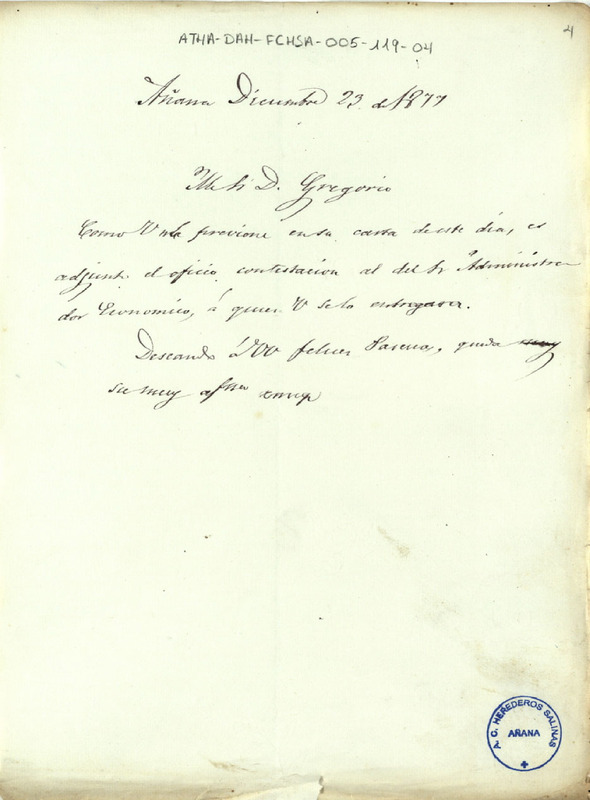 4
ATHA-DAH-FCHSA-005-119-04
Añana Diciembre 23 de 1877
D. Gregorio
Como V me previene en su carta de este día, es
adjunto el oficio contestacion al del Sr Administra
dor Economico, á quien V se lo entregará.
Deseando á VV felices Pascuas, queda muy
su muy afmo amigo
A. C. HEREDEROS SALINAS
AÑANA